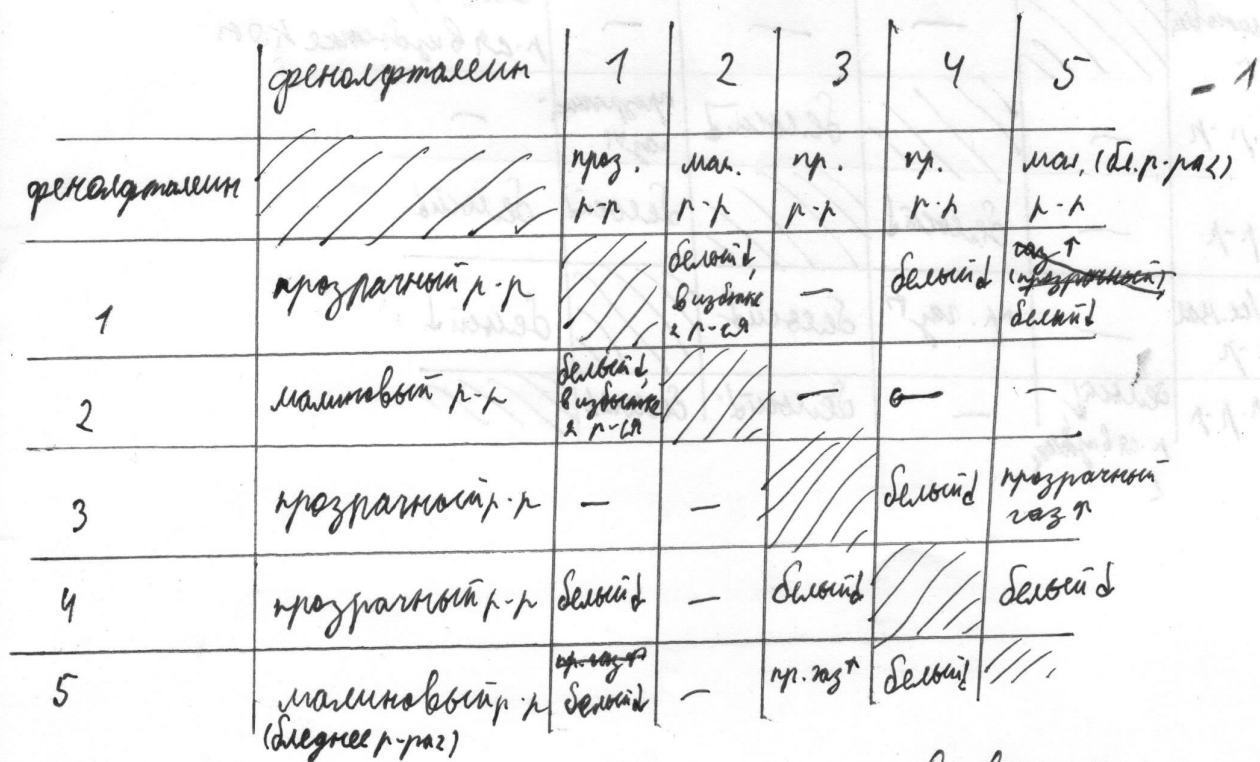 фенолфталеин 1 2 3 4 5 - 1
фенолфталеин проз. р-р мал. р-р пр. р-р пр. р-р мал. (бл. р-ра2) р-р
1 прозрачный р-р белый↓, в избытке р-ся — белый↓ газ↑ (прозрачный), белый↓
2 малиновый р-р белый↓, в избытке р-ся — — —
3 прозрачный р-р — — белый↓ прозрачный газ↑
4 прозрачный р-р белый↓ — белый↓ белый↓
5 малиновый р-р (бледнее р-ра2) пр. газ↑ белый↓ — пр. газ↑ белый↓